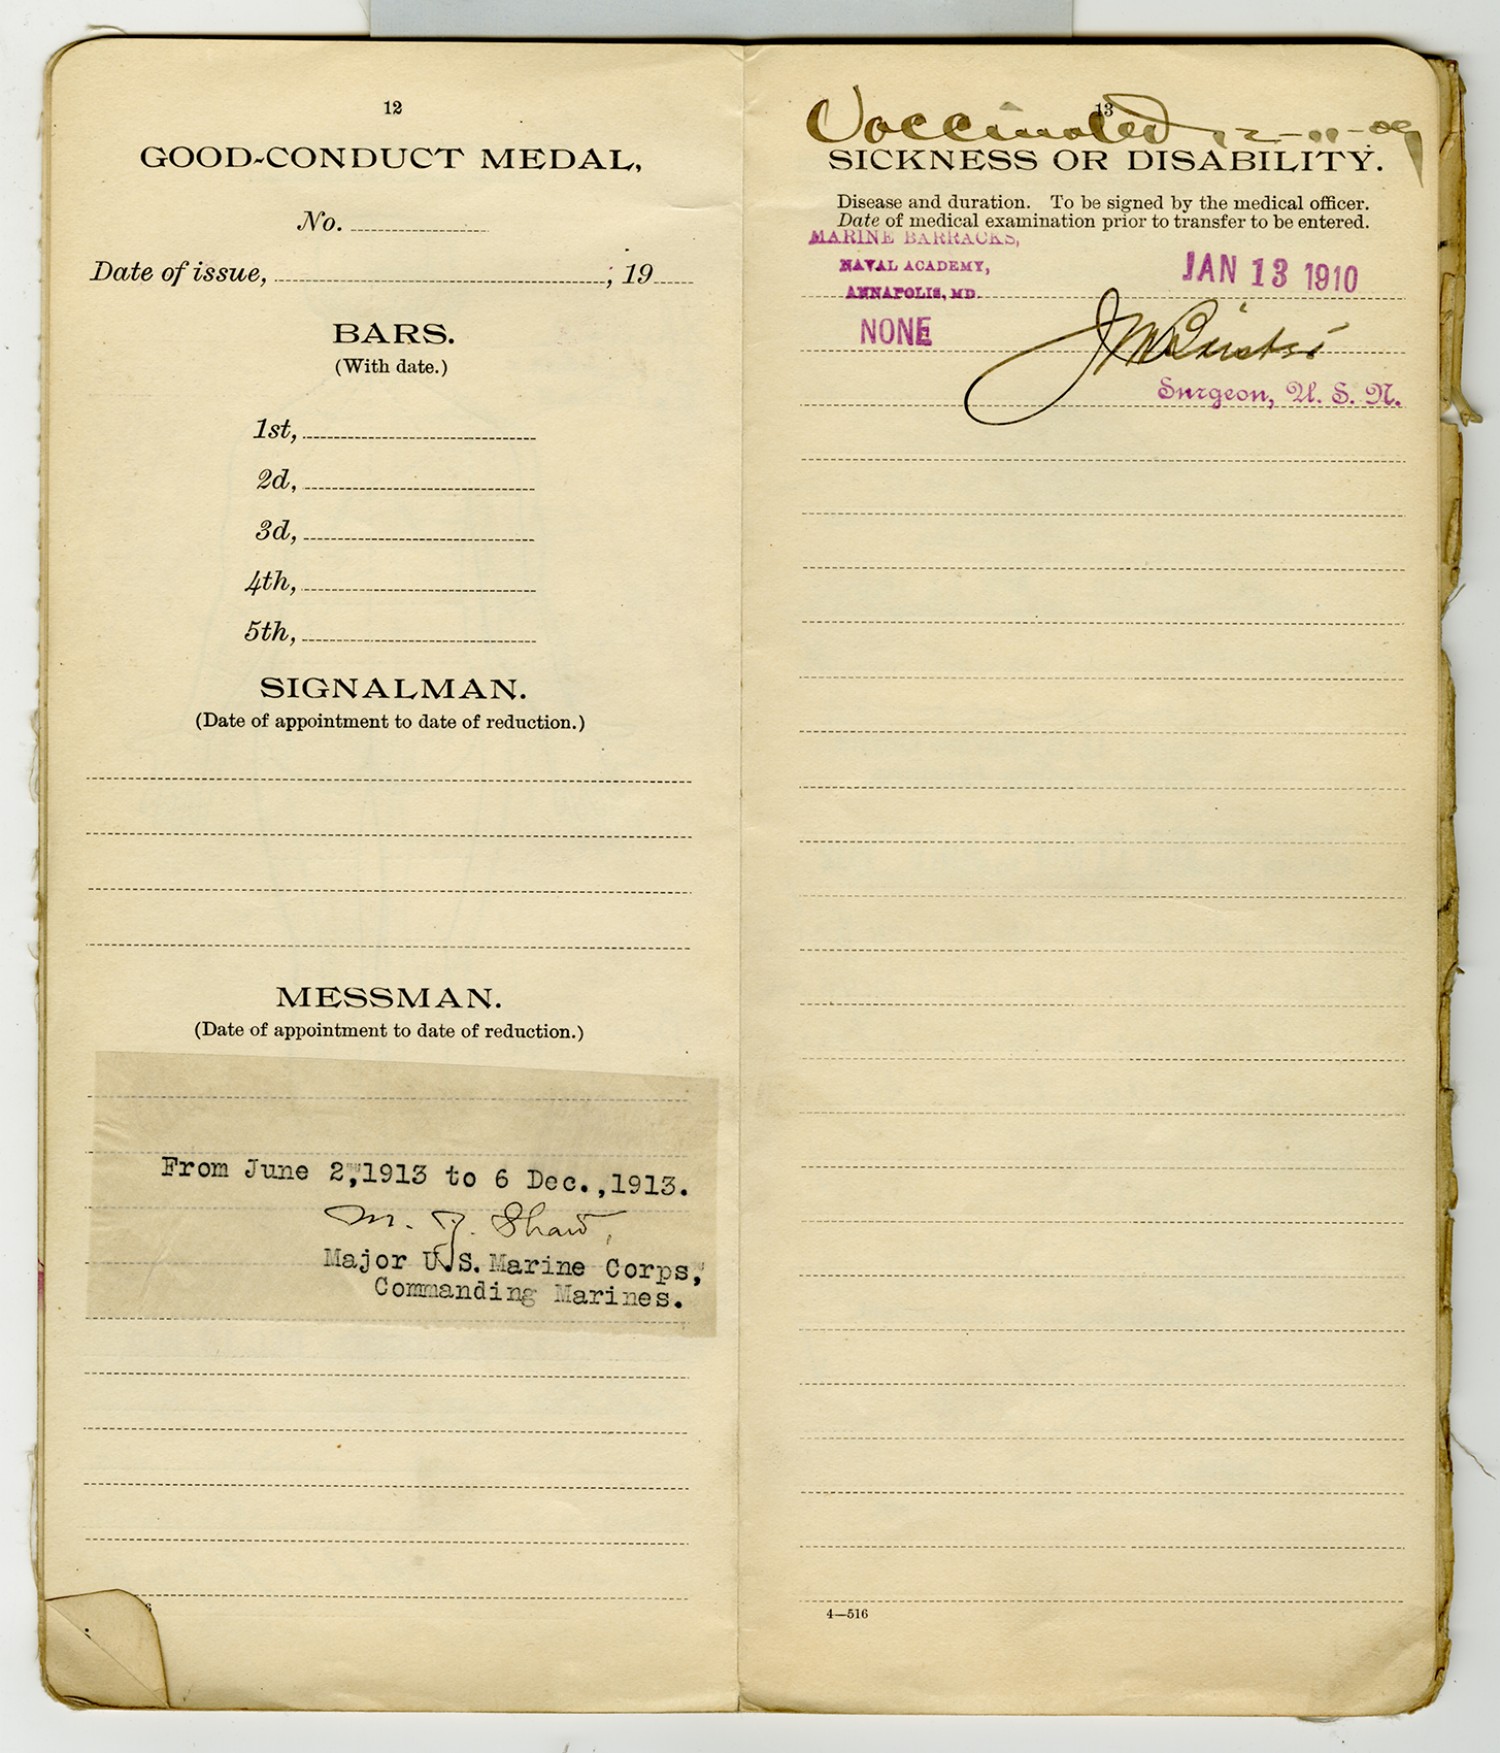 12
GOOD-CONDUCT MEDAL,
No.
Date of issue, ; 19
BARS.
(With date.)
1st,
2d,
3d,
4th,
5th,
SIGNALMAN.
(Date of appointment to date of reduction.)
MESSMAN.
(Date of appointment to date of reduction.)
From June 2,1913 to 6 Dec.,1913.
M. J. Shaw,
Major U.S. Marine Corps,
Commanding Marines.
13
Vaccinated 12-11-09
SICKNESS OR DISABILITY.
Disease and duration. To be signed by the medical officer.
Date of medical examination prior to transfer to be entered.
MARINE BARRACKS,
NAVAL ACADEMY,
ANNAPOLIS, MD.
JAN 13 1910
NONE
Surgeon, U. S. N.
4—516